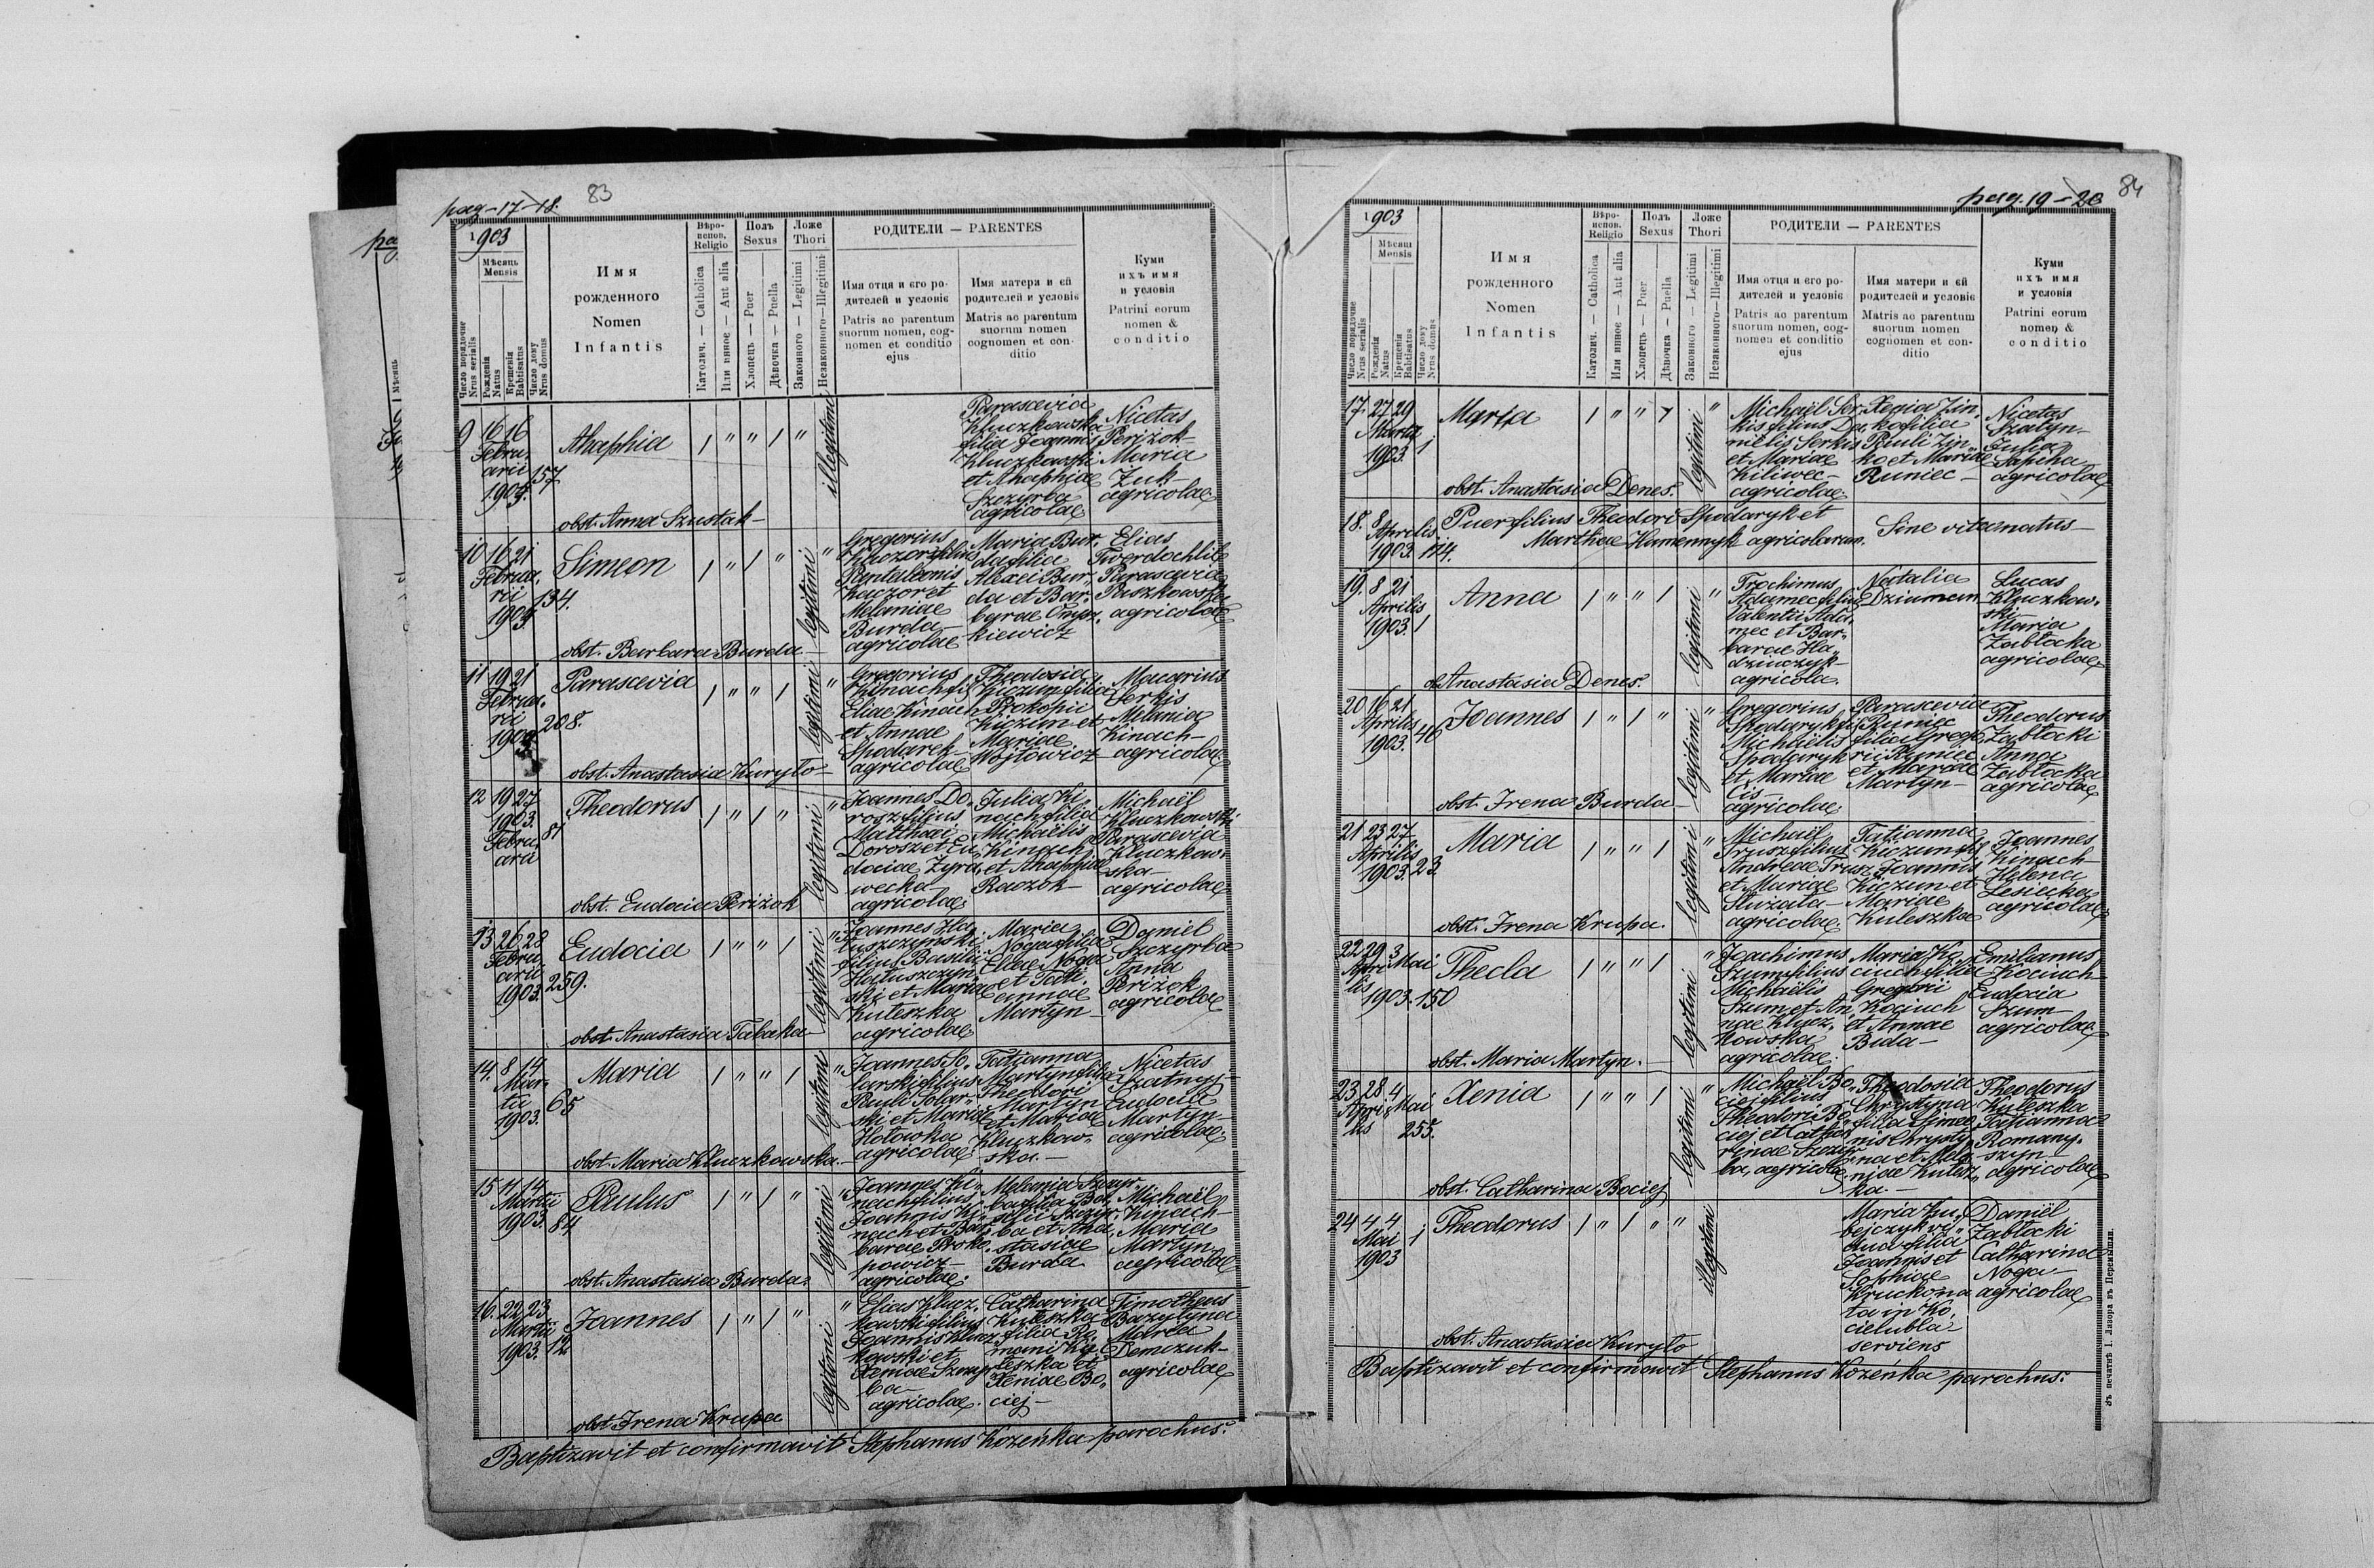 pag-17-18.
83
1903
Мѣсяць
Mensis
Число порядочне
Nrus serialis
Рожденія
Natus
Крещенія
Babtisatus
Число дому
Nrus domus
Имя
рожденного
Nomen
Infantis
Вѣро-
испов.
Religio
Католич. — Catholica
Или инное — Aut alia
Полъ
Sexus
Хлопець — Puer
Дѣвочка — Puella
Ложе
Thori
Законного — Legitimi
Незаконного — Illegitimi
РОДИТЕЛИ — PARENTES
Имя отця и его ро-
дителей и условіє
Patris ac parentum
suorum nomen, cog-
nomen et conditio
ejus
Имя матери и ей
родителей и условіє
Matris ac parentum
suorum nomen
cognomen et con-
ditio
Куми
ихъ имя
и условія
Patrini eorum
nomen &
conditio
9
16 16
Febru.
arii
1903.
157
Ahaphia
/ " " / "
illegitimi
Parascevia
Kluczkowska
filia Joannis
Kluczkowski
et Ahaphiae
Szczyrba
agricolae
Nicetas
Periżok-
Maria
Żuk-
agricolae
obst. Anna Szustak-
10
16 21
Februa.
rii
1903
134.
Simeon
/ " / "
legitimi
"
Gregorius
Kaczor filius
Pantaleonis
Kaczor et
Melaniae
Burda-
agricolae
Maria Bur.
da filia
Alexei Bur.
da et Bar.
barae Onysz.
kiewicz
Elias
Twerdochlib
Parascevia
Paszkowska
agricolae
obst. Barbara Burda-
11
19 21
Februa.
rii
190
208.
Parascevia
/ " " /
legitimi
"
Gregorius
Kinach fil.
Eliae Kinach
et Annae
Spodarek-
agricolae
Theodosia
Kiczun filia
Prokopii
Kiczun et
Mariae
Wojtowicz
Macarius
Serkis
Melania
Kinach-
agricolae
obst. Anastasia Kuryło-
12
19 27
1903.
Febru.
arii
81
Theodorus
/ " / "
legitimi
"
Joannes Do.
rosz filius
Matthaei
Dorosz et Eu
dociae Żyra,
wecka-
agricolae
Julia Ki.
nach filia
Michaëlis
Kinach
et Ahaphiae
Raczok-
Michaël
Kluczkowski
Parascevia
Kluczkow.
ska-
agricolae
obst. Eudocia Periżok
13
26 28
Febru.
arii
1903.
259.
Eudocia
/ " " /
legitimi
"
Joannes Ha
łuszczyński
filius Basilii
Hałuszczyn
ski et Mariae
Kuleszka
agricolae
Maria
Noga filia
Eliae Noga
et Tati.
annae
Martyn-
Daniel
Szczyrba
Anna
Periżok
agricolae
obst. Anastasia Tabaka-
14.
8 14
Mar.
tii
1903.
65
Maria
/ " " /
legitimi
"
Joannes So.
larski filius
Pauli Solar.
ski et Mariae
Hołowka
agricolae
Tatianna
Martyn filia
Theodori
Martyn
et Mariae
Kluczkow.
ska.-
Nicetas
Eudocia
Martyn-
agricolae
obst. Maria Kluczkowska.-
15
11 14
Martii
1903.
84
Paulus
/ " / "
legitimi
"
Joannes Ki.
nach filius
Joannis Ki.
nach et Bar.
barae Proko.
powicz-
agricolae
Melania Szczyr.
ba filia Ba.
silii Szczyr.
ba et Ana.
stasiae
Burda
Michaël
Kinach-
Maria
Martyn-
agricolae
obst. Anastasia Burda.
16.
22 23
Martii
1903.
12
Joannes
/ " / "
legitimi
"
Elias Klucz.
kowski filius
Joannis Klucz
kowski et
Xeniae Szczyr
ba-
agricolae.
Catharina
Kuleszka
filia Ro.
mani Ku.
leszka et
Xeniae Bo.
ciej-
Timotheus
Bazylyna
Maria
Demczuk-
agricolae
obst. Irena Krupa
Baptizavit et confirmavit Stephanus Kozeńka parochus.
pag. 19-20
84
1903
Мѣсяць
Mensis
Число порядочне
Nrus serialis
Рожденія
Natus
Крещенія
Babtisatus
Число дому
Nrus domus
Имя
рожденного
Nomen
Infantis
Вѣро-
испов.
Religio
Католич. — Catholica
Или инное — Aut alia
Полъ
Sexus
Хлопець — Puer
Дѣвочка — Puella
Ложе
Thori
Законного — Legitimi
Незаконного — Illegitimi
РОДИТЕЛИ — PARENTES
Имя отця и его ро-
дителей и условіє
Patris ac parentum
suorum nomen, cog-
nomen et conditio
ejus
Имя матери и ей
родителей и условіє
Matris ac parentum
suorum nomen
cognomen et con-
ditio
Куми
ихъ имя
и условія
Patrini eorum
nomen &
conditio
17.
27 29
Martii
1903.
1
Maria
/ " " /
legitimi
"
Michaël Ser.
kis filius Da.
niëlis Serkis
et Mariae
Kiliwec-
agricolae
Xenia Zin.
ko filia
Pauli Zin.
ko et Mariae
Runiec-
Nicetas
Szatyn-
Julia
Sapiha
agricolae
obst. Anastasia Denes.
18.
8
Aprilis
1903.
114.
Puer filius Theodori Spodaryk et
Marthae Kamennyk agricolarum.
Sine vita natus-
19.
8 21
Aprilis
1903.
1
Anna
/ " " /
legitimi
"
Trochimus
Adamec filius
Valentii Ada.
mec et Bar.
barae Ha.
dzinczyk-
agricola.
Natalia
Dziuman
Lucas
Kluczkow.
ski
Maria
Zabłocka
agricolae
ob. Anastasia Denes.
20
16 21
Aprilis
1903.
46
Joannes
/ " / "
legitimi
"
Gregorius
Spodaryk fi.
Michaëlis
Spodaryk
et Mariae
Cis-
agricolae
Parascevia
Runiec
filia Grego.
rii Runiec
et Mariae
Martyn-
Theodorus
Zabłocki
Anna
Zabłocka
agricolae
obst. Irena Burda-
21
23 27
Aprilis
1903.
23.
Maria
/ " " /
legitimi
"
Michaël
Trusz filius
Andreae Trusz
et Mariae
Służała-
agricolae
Tatianna
Kiczun fil.
Joannis
Kiczun et
Mariae
Kuleszka
Joannes
Kinach-
Helena
Lesiecka
agricolae
obst. Irena Krupa.
22
29 3
Apri Mai
lis
1903.
150
Thecla
/ " " /
legitimi
"
Joachimus
Szum filius
Michaëlis
Szum et An.
nae Klucz.
kowska
agricolae.
Maria Ko.
ciuch filia
Gregorii
Kociuch
et Annae
Bida-
Emilianus
Kociuch-
Eudocia
Szum-
agricolae
obst. Maria Martyn.-
23
28 4
Apri Mai
lis
255.
Xenia
/ " " /
legitimi
"
Michaël Bo.
ciej filius
Theodori Bo.
ciej et Catha
rinae Szczyr
ba, agricolae
Theodosia
Chrystyna
filia Simeo
nis Chrysty.
na et Mela.
niae Kulesz.
ka.-
Theodorus
Kuleszka
Tatianna
Romany.
szyn-
agricolae
obst. Catharina Bociej
24
4 4
Mai
1903
1
Theodorus
/ " / " "
illegitimi
Maria Ku.
bejczyk vi.
dua filia
Joannis et
Sophiae
Kruck, na
ta in Ko.
cielubla-
serviens
Daniël
Zabłocki
Catharina
Noga-
agricolae
obst. Anastasia Kuryło
Baptizavit et confirmavit Stephanus Kozeńka parochus.
въ печатнѣ І. Лазора въ Перемышли.